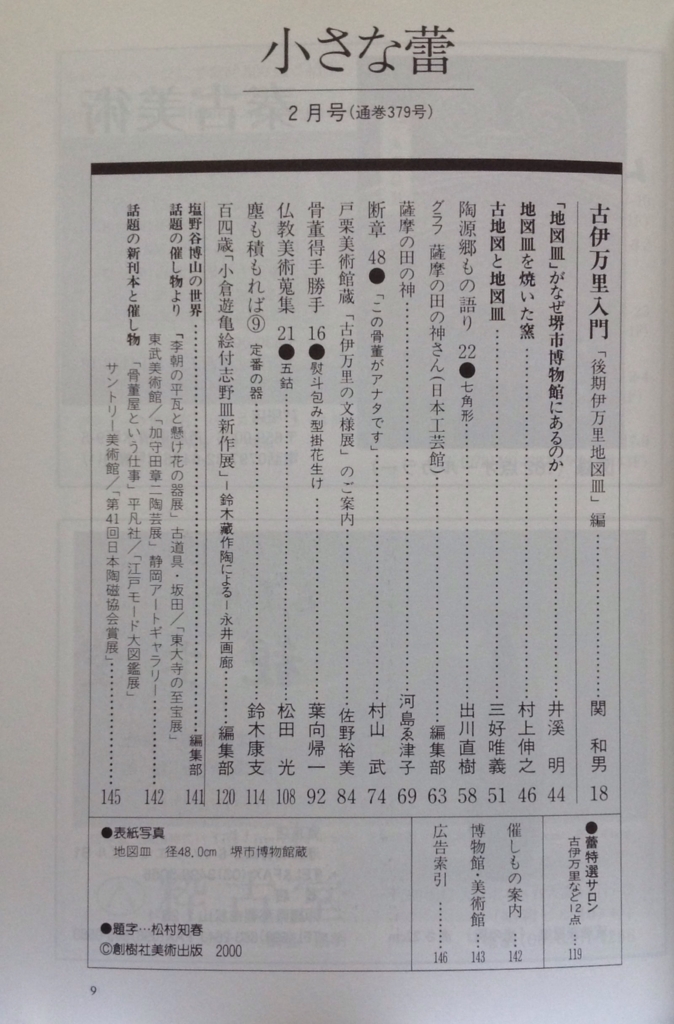 小さな蕾
2月号(通巻379号)
古伊万里入門「後期伊万里地図皿」編…………関 和男 18
「地図皿」がなぜ堺市博物館にあるのか…………井溪 明 44
地図皿を焼いた窯…………村上伸之 46
古地図と地図皿…………三好唯義 51
陶源郷もの語り 22●七角形…………出川直樹 58
グラフ 薩摩の田の神さん(日本工芸館)…………編集部 63
薩摩の田の神…………河島ゑ津子 69
断章 48●「この骨董がアナタです」…………村山 武 74
戸栗美術館蔵「古伊万里の文様展」のご案内…………佐野裕美 84
骨董得手勝手 16●熨斗包み型掛花生け…………葉向帰一 92
仏教美術蒐集 21●五鈷…………松田 光 108
塵も積もれば⑨ 定番の器…………鈴木康支 114
百四歳「小倉遊亀絵付志野皿新作展」―鈴木藏作陶による―永井画廊…………編集部 120
塩野谷博山の世界…………編集部 141
話題の催し物より 「李朝の平瓦と懸け花の器展」古道具・坂田/「東大寺の至宝展」
東武美術館/「加守田章二陶芸展」静岡アートギャラリー…………142
話題の新刊本と催し物 「骨董屋という仕事」平凡社/「江戸モード大図鑑展」
サントリー美術館/「第41回日本陶磁協会賞展」…………145
●蕾特選サロン
古伊万里など12点…………119
催しもの案内…………142
博物館・美術館…………143
広告索引…………146
●表紙写真
地図皿 径48.0cm 堺市博物館蔵
●題字…松村知春
©創樹社美術出版 2000
9